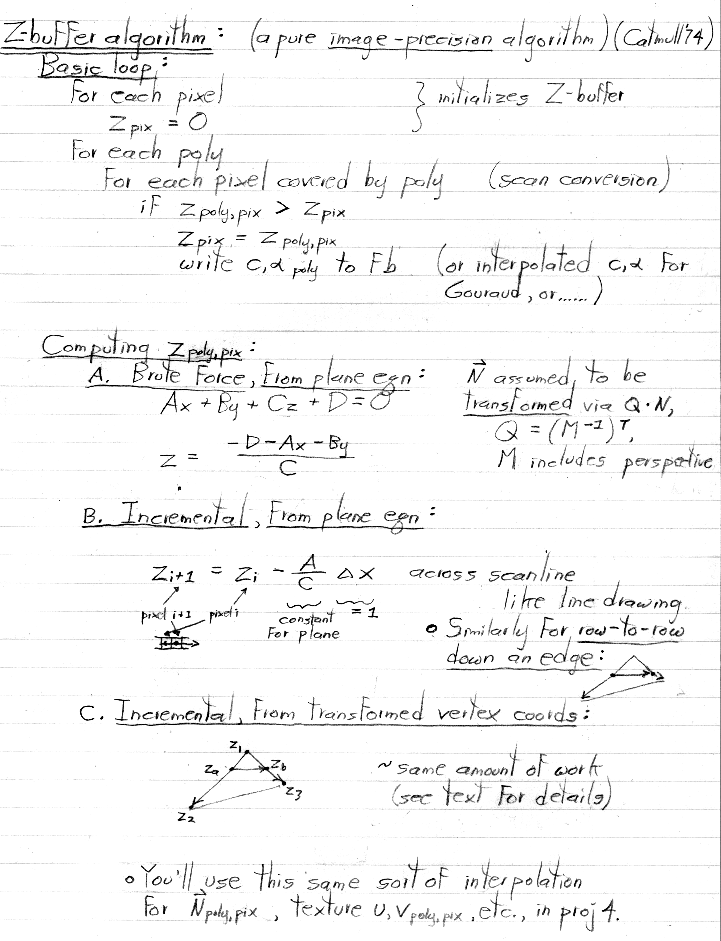 Z-buffer algorithm: (a pure image-precision algorithm) (Catmull '74)
Basic loop:
For each pixel } initializes Z-buffer
Z pix = 0
For each poly
For each pixel covered by poly (scan conversion)
if Z poly,pix > Z pix
Z pix = Z poly,pix
write c,α poly to Fb (or interpolated c,α For
Gouraud, or......)
Computing Z poly,pix:
A. Brute Force, From plane eqn:
Ax + By + Cz + D = 0
z = (-D-Ax-By) / C
N⃗ assumed to be
transformed via Q·N,
Q = (M⁻¹)ᵀ,
M includes perspective
B. Incremental, From plane eqn:
Z i+1 = Z i - A/C Δx across scanline
like line drawing.
pixel i+1 pixel i constant = 1
For plane
• Similarly For row-to-row
down an edge:
C. Incremental, From transformed vertex coords:
Z1
Za Zb
Z3
Z2
~ same amount of work
(see text For details)
• You'll use this same sort of interpolation
For N⃗ poly,pix, texture U,V poly,pix, etc., in proj 4.